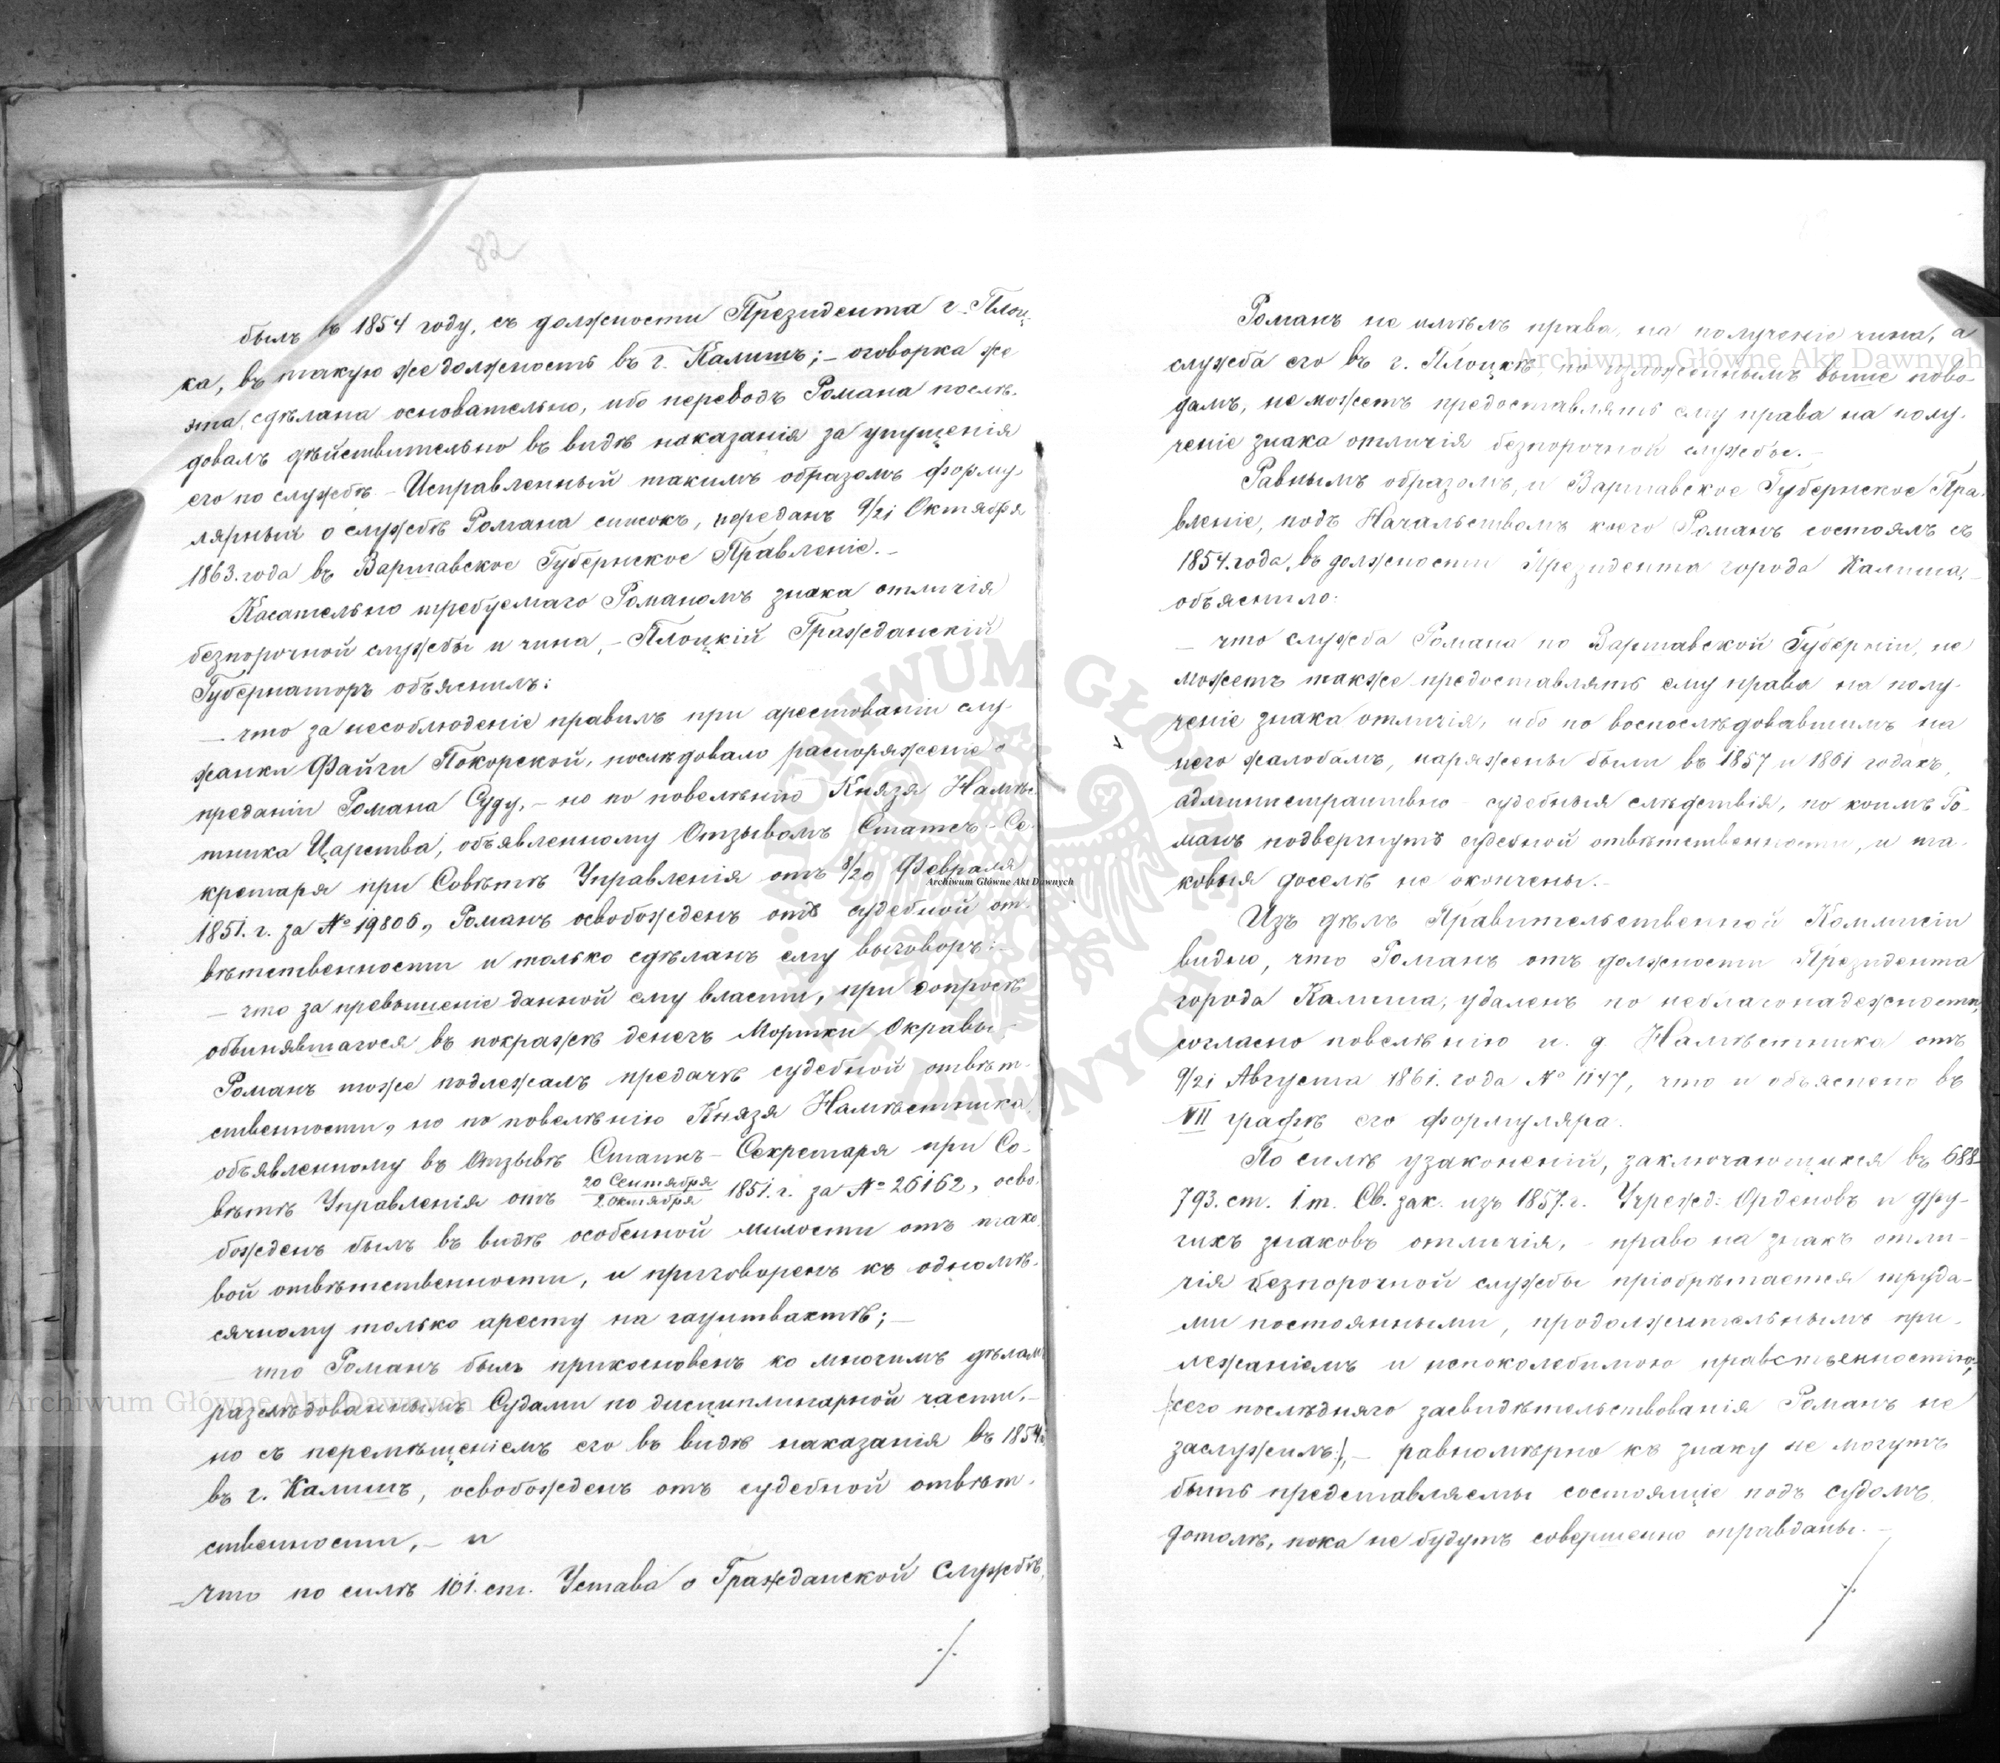 82
былъ въ 1854 году, съ должности Президента г. Плоц-
ка, въ такую же должность въ г. Калишъ; – оговорка же
эта, сдѣлана основательно, ибо переводъ Романа послѣ-
довалъ дѣйствительно въ видѣ наказанія за упущенія
его по службѣ. – Исправленный такимъ образомъ форму-
лярный о службѣ Романа списокъ, переданъ 9/21 Октября
1863. года въ Варшавское Губернское Правленіе. –
Касательно требуемаго Романомъ знака отличія
безпорочной службы и чина, – Плоцкій Гражданскій
Губернаторъ объяснилъ:
– что за несоблюденіе правилъ при арестованіи слу-
жанки Файги Покорской, послѣдовало распоряженіе о
преданіи Романа Суду, – но по повелѣнію Князя Намѣс-
тника Царства, объявленному Отзывомъ Статсъ-Се-
кретаря при Совѣтѣ Управленія отъ 8/20 Февраля
1851. г. за № 19806, Романъ освобожденъ отъ судебной от-
вѣтственности и только сдѣланъ ему выговоръ: –
– что за превышеніе данной ему власти, при допросѣ
обвинявшагося въ покражѣ денегъ Моршки Окравы, –
Романъ тоже подлежалъ предачѣ судебной отвѣт-
ственности, но по повелѣнію Князя Намѣстника,
объявленному въ Отзывѣ Статсъ-Секретаря при Со-
вѣтѣ Управленія отъ 20 Сентября/2 Октября 1851. г. за № 26162, осво-
божденъ былъ въ видѣ особенной милости отъ тако-
вой отвѣтственности, и приговоренъ къ одномѣ-
сячному только аресту на гауптвахтѣ; –
– что Романъ былъ прикосновенъ ко многимъ дѣламъ
разслѣдованнымъ Судами по дисциплинарной части, –
но съ перемѣщеніемъ его въ видѣ наказанія въ 1854 г.
въ г. Калишъ, освобожденъ отъ судебной отвѣт-
ственности, – и
– что по силѣ 101. ст. Устава о Гражданской Службѣ,
./.
Романъ не имѣлъ права, на полученіе чина, а
служба его въ г. Плоцкѣ по изложеннымъ выше пово-
дамъ, не можетъ предоставлять ему права на полу-
ченіе знака отличія безпорочной службы. –
Равнымъ образомъ, и Варшавское Губернское Пра-
вленіе, подъ Начальствомъ коего Романъ состоялъ съ
1854. года, въ должности Президента города Калиша, –
объяснило:
– что служба Романа по Варшавской Губерніи, не
можетъ также предоставлять ему права на полу-
ченіе знака отличія, ибо по воспослѣдовавшимъ на
него жалобамъ, наряжены были въ 1857 и 1861 годахъ,
административно-судебныя слѣдствія, по коимъ Ро-
манъ подвергнутъ судебной отвѣтственности, и та-
ковыя доселѣ не окончены. –
Изъ дѣлъ Правительственной Коммисіи
видно, что Романъ отъ должности Президента
города Калиша, удаленъ по неблагонадежности,
согласно повелѣнію и. д. Намѣстника отъ
9/21 Августа 1861. года № 1147, что и объяснено въ
VII графѣ его формуляра.
По силѣ узаконеній, заключающихся въ 688-
793. ст. 1. т. Св. зак. изъ 1857. г. Учрежд: Орденовъ и дру-
гихъ знаковъ отличія, – право на знакъ отли-
чія безпорочной службы пріобрѣтается труда-
ми постоянными, продолжительнымъ при-
лежаніемъ и непоколебимою нравственностію,
/:сего послѣдняго засвидѣтельствованія Романъ не
заслужилъ:/, – равномѣрно къ знаку не могутъ
быть представляемы состоящіе подъ судомъ,
дотолѣ, пока не будутъ совершенно оправданы. –
./.
Archiwum Główne Akt Dawnych
Archiwum Główne Akt Dawnych
Archiwum Główne Akt Dawnych
ARCHIWUM GŁÓWNE AKT DAWNYCH